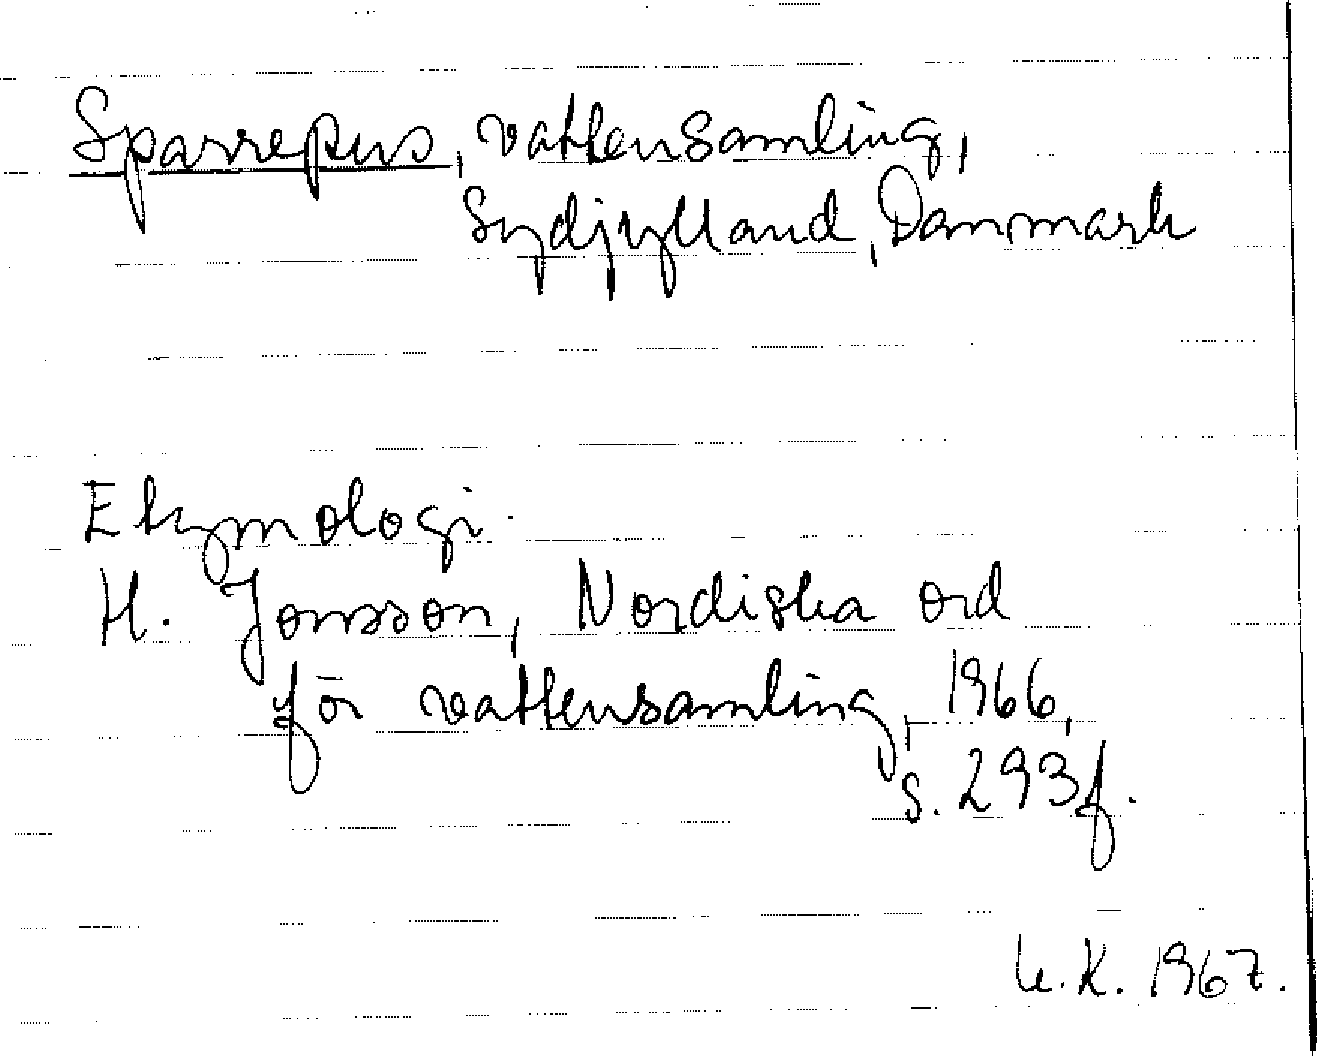 Sparrepus, vattensamling,
Sydjylland, Danmark
Etymologi.
H. Jonsson, Nordiska ord
för vattensamling, 1966,
s. 293f.
U.K. 1967.